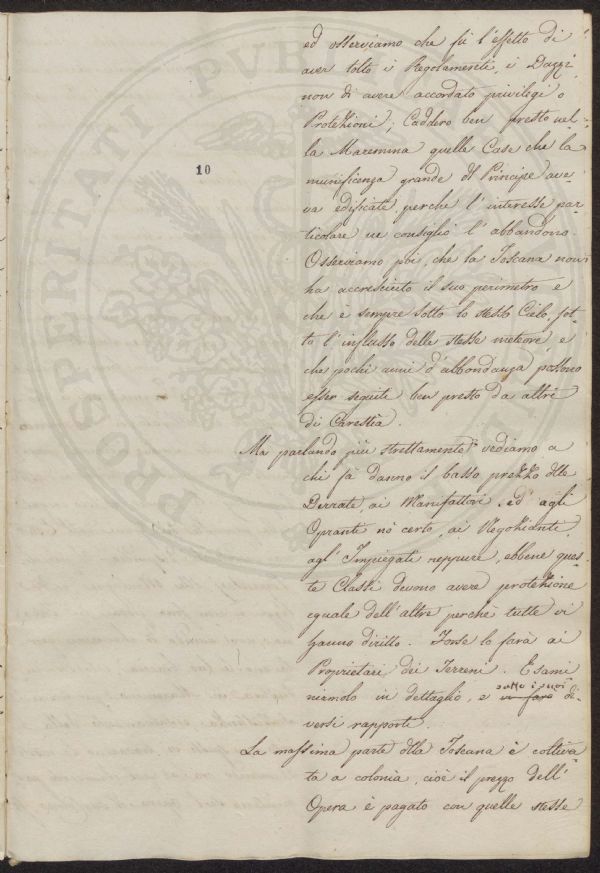 10
ed osserviamo che fù l'effetto di
aver tolto i Regolamenti, i Dazzi,
non di avere accordato privilegi o
Protezioni; Caddero ben presto nel-
la Maremma quelle Case che la
munificenza grande del Principe ave-
va edificate, perchè l'interesse par-
ticolare ne consigliò l'abbandono.
Osserviamo poi, che la Toscana non
ha accresciuto il suo perimetro e
che è sempre sotto lo stesso Cielo, sot-
to l'influsso delle stesse meteore e
che pochi anni d'abbondanza possono
esser seguiti ben presto da altri
di Carestia.
Ma parlando più strettamente vediamo a
chi fà danno il basso prezzo dlle
Derrate, ai Manifattori, ed agli
Opranti nò certo, ai Negozianti,
agl'Impiegati neppure, ebbene ques-
te Classi devono avere protezione
eguale dell'altre perchè tutte vi
hanno diritto. Forse lo farà ai
Proprietari dei Terreni. Esami
niamolo in dettaglio, e sotto i suoi di-
versi rapporti.
La massima parte dlla Toscana è coltiva
ta a colonìa, cioè il prezzo dell'
Opera è pagato con quelle stesse
PROSPERITATI PVB